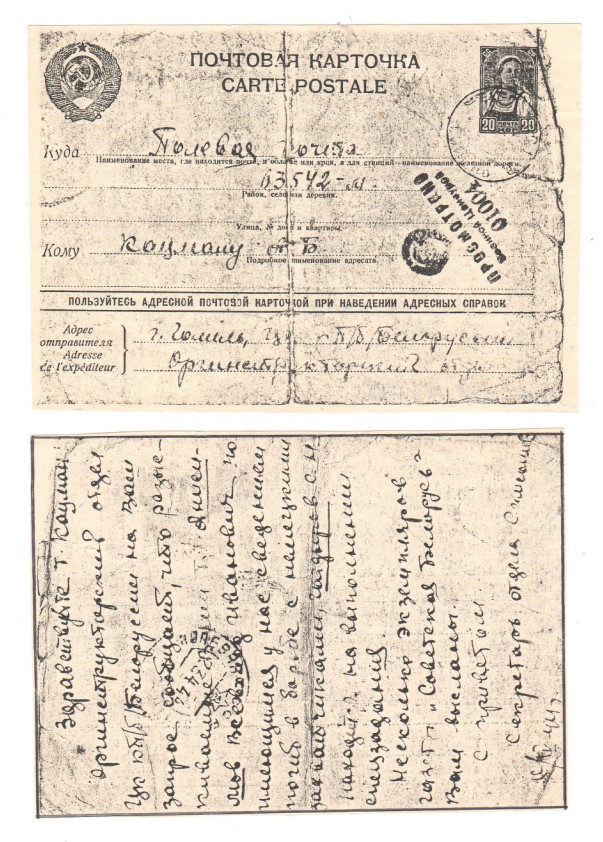 ПОЧТОВАЯ КАРТОЧКА
CARTE POSTALE
20 ПОЧТА 20
Куда Полевая почта
Наименование места, где находится почта, и области или края, а для станций - наименование железной дороги.
03542-м
Район, село или деревня.
Улица, № дома и квартиры.
Кому Кацману А Б
Подробное наименование адресата.
ПРОСМОТРЕНО
Военной Цензурой
01004
ПОЛЬЗУЙТЕСЬ АДРЕСНОЙ ПОЧТОВОЙ КАРТОЧКОЙ ПРИ НАВЕДЕНИИ АДРЕСНЫХ СПРАВОК
Адрес
отправителя
Adresse
de l'expéditeur
г. Гомиль, ЦК КП/б/ Белоруссии
Оргинструкторский отдел
Здравствуйте т. Кацман
Оргинструкторский отдел
ЦК КП/б/ Белоруссии на Ваш
запрос сообщает, что разыс-
киваемый
Всеволод Иванович по
имеющимся у нас сведениям
погиб в борьбе с немецкими
захватчиками,
находясь на выполнении
спецзадания.
Несколько экземпляров
газеты "Советская Белорусь"
Вам высланы.
С приветом.
Секретарь отдела